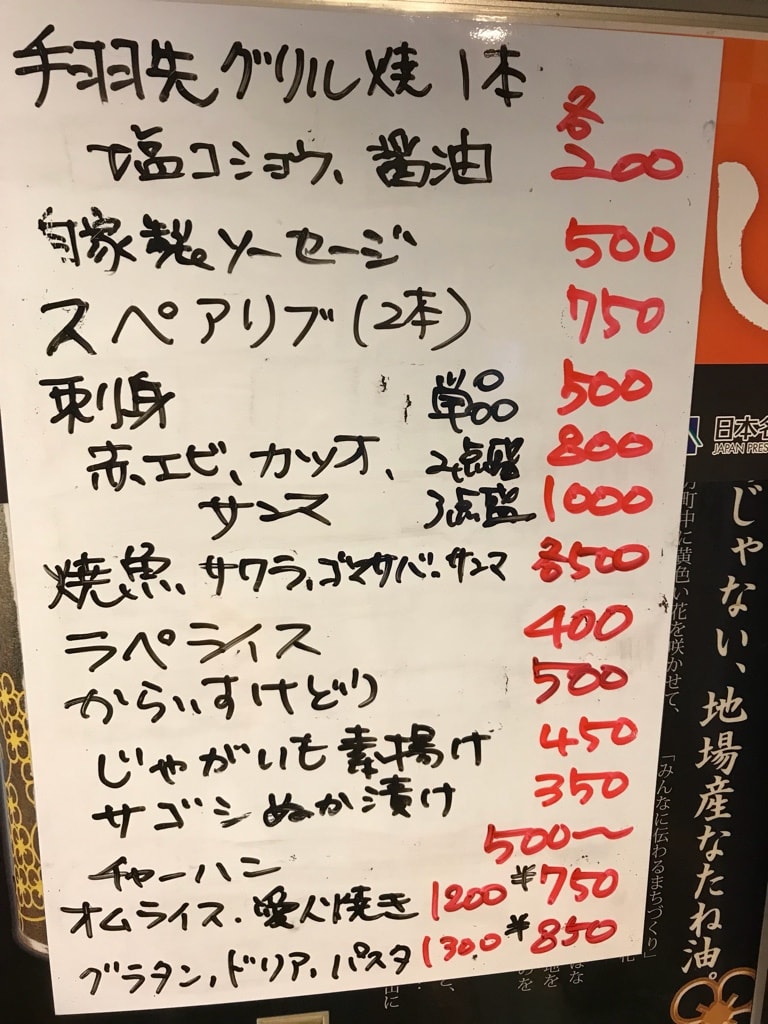 手羽先グリル焼 1本
塩コショウ、醤油 各200
自家製ソーセージ 500
スペアリブ(2本) 750
刺身 単品 500
赤エビ、カツオ、 2点盛 800
サンマ 3点盛 1000
焼魚、サワラ、ゴマサバ、サンマ 各500
ラペライス 400
からいすけどり 500
じゃがいも素揚げ 450
サゴシぬか漬け 350
チャーハン 500〜
オムライス、愛人焼き 1200 半750
グラタン、ドリア、パスタ 1300 半850
し
日本名
JAPAN PRES
じゃない、地場産なたね油。
町中に黄色い花を咲かせて、
「みんなに伝わるまちづくり」